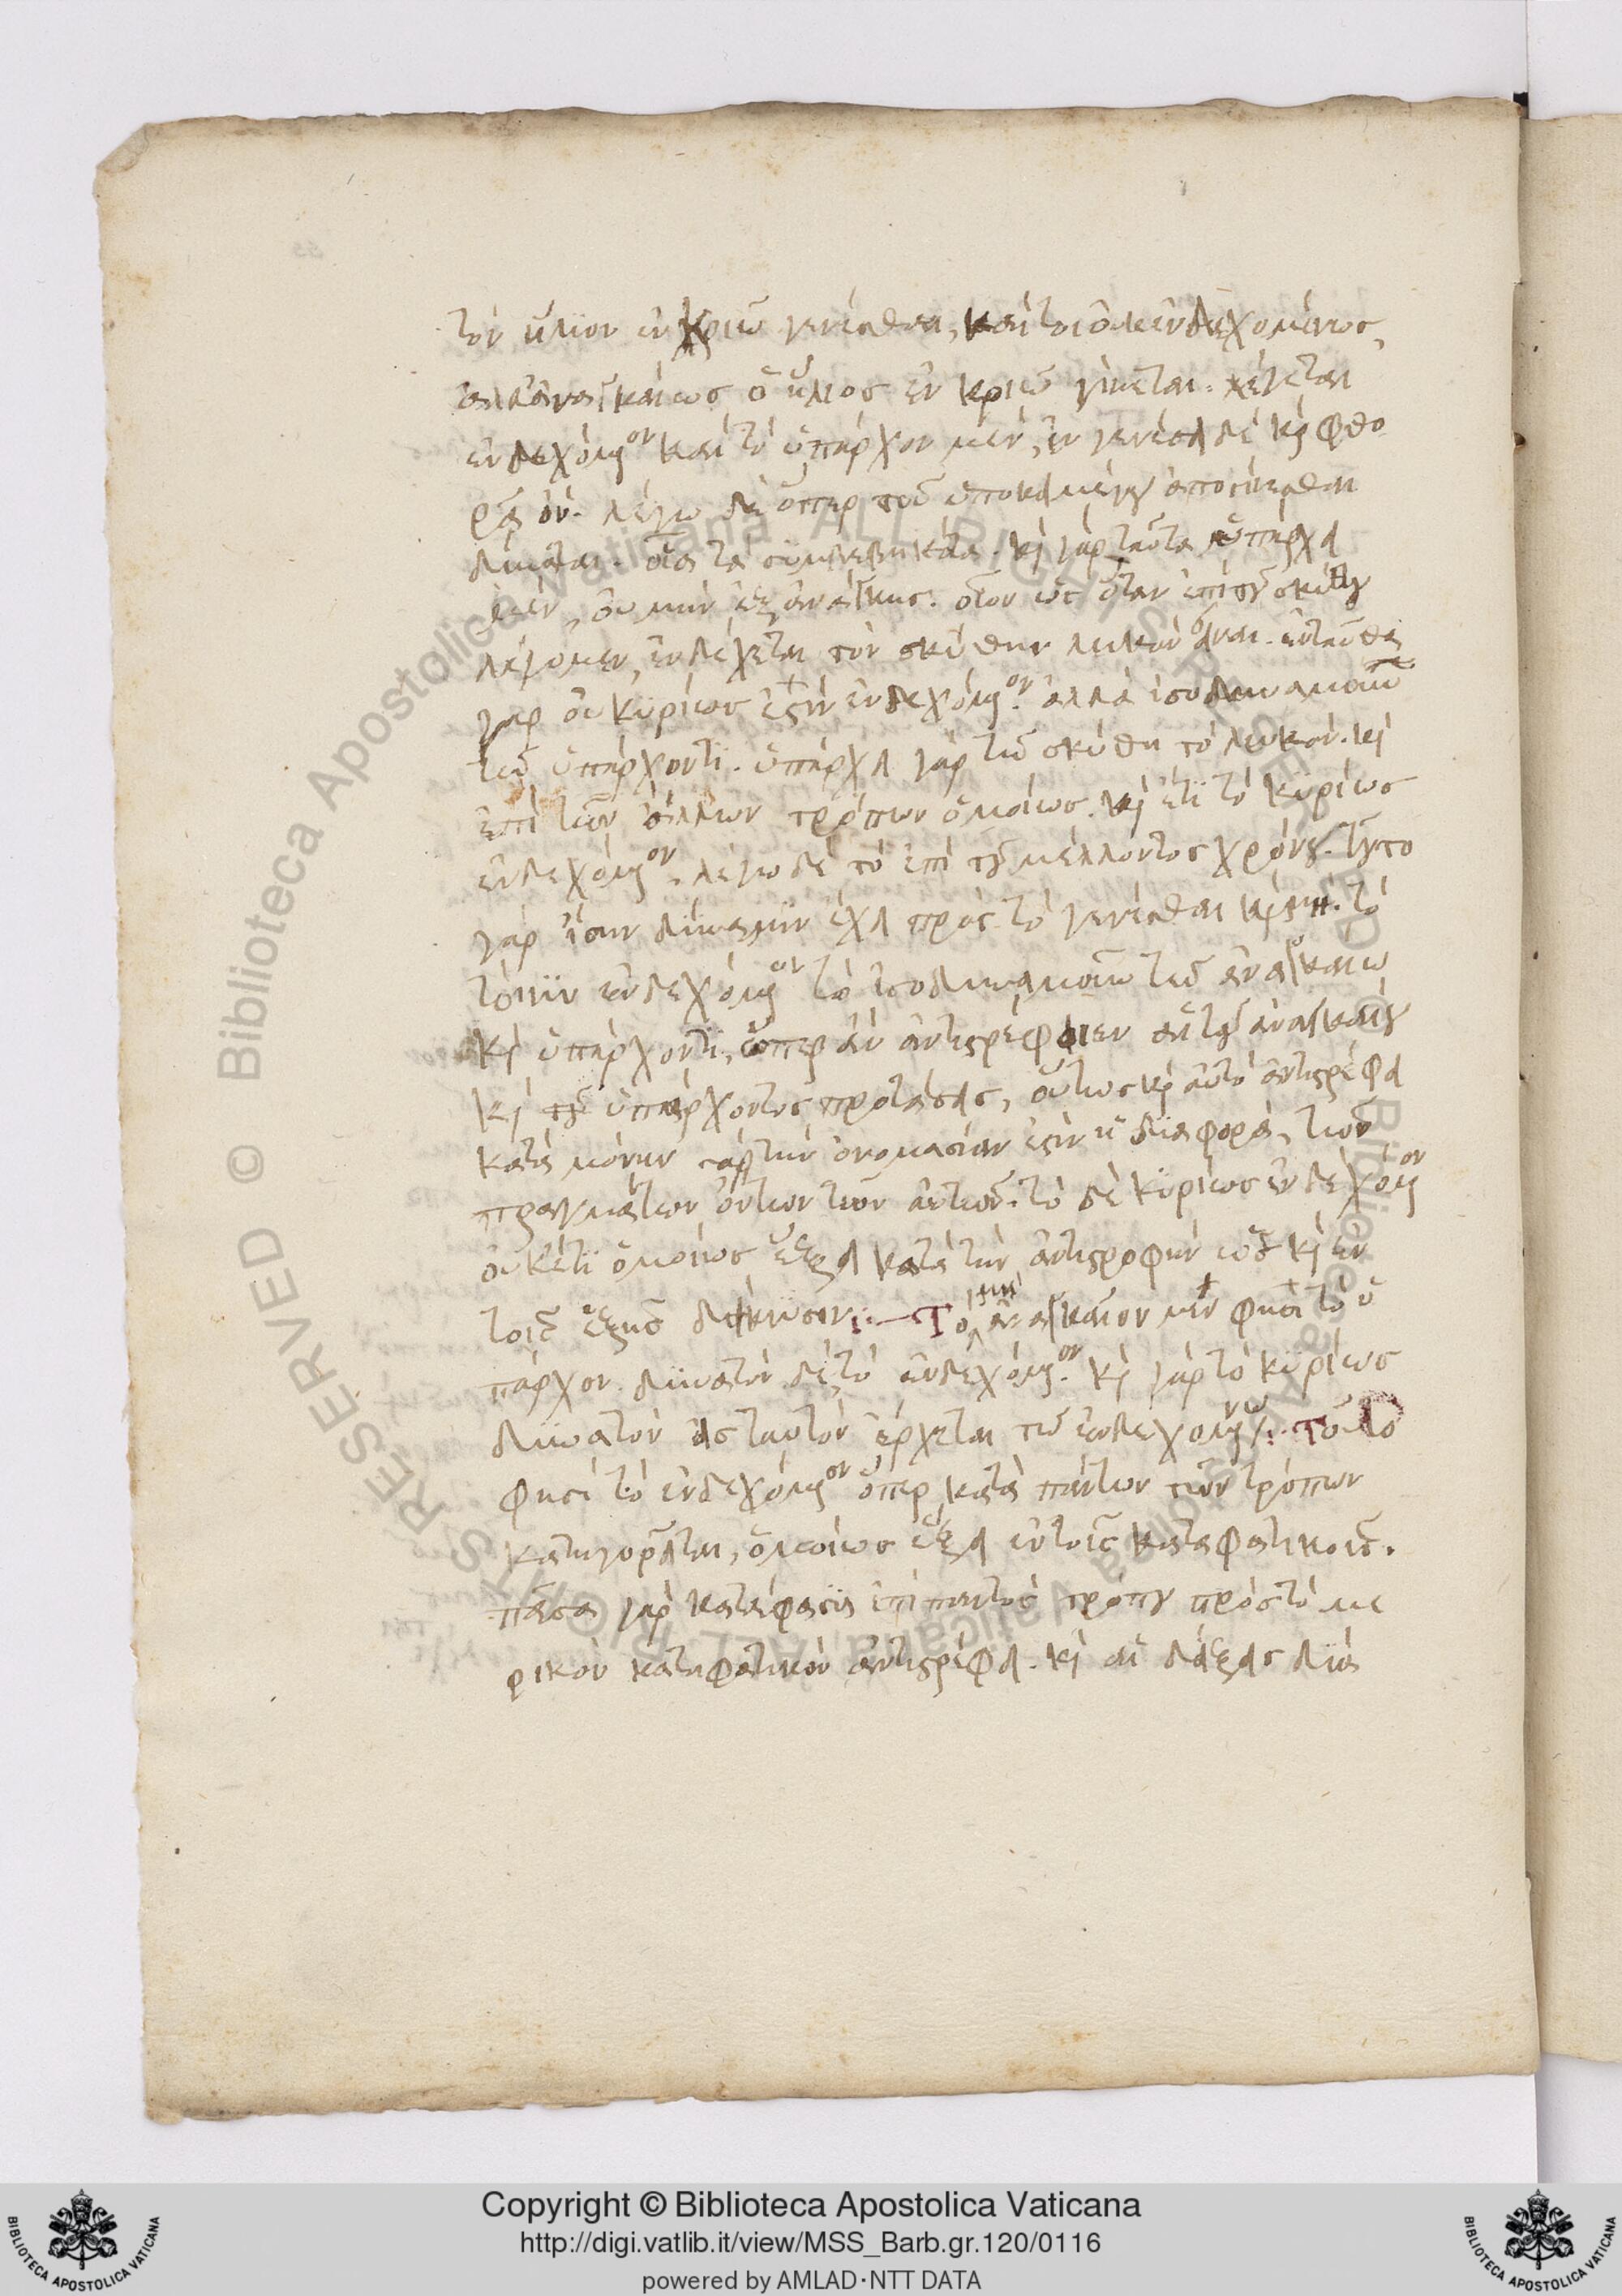 τὸν ἥλιον ἐν κριῷ γενέσθαι, καί τοι οὐκ ἐνδεχομένως,
ἀλλ' ἀναγκαίως ὁ ἥλιος ἐν κριῷ γίνεται. λέγεται
ἐνδεχόμενον καὶ τὸ ὑπάρχον μὲν, ἐν γενέσει δὲ καὶ φθο
ρᾷ ὄν. λέγω δὲ ὅπερ τοῦ ὑποκειμένου ἀπογίνεσθαι
δύναται. οἷα τὰ συμβεβηκότα. καὶ γὰρ ταῦτα ὑπάρχει
μὲν, οὐ μὴν ἐξ ἀνάγκης. οἷον ὡς ὅταν ἐπὶ τοῦ σκύθου
λέγομεν, ἐνδέχεται τὸν σκύθην λευκὸν εἶναι. ἐνταῦθα
γὰρ οὐ κυρίως ἐστὶν ἐνδεχόμενον. ἀλλὰ ἰσοδυναμοῦν
τῷ ὑπάρχοντι. ὑπάρχει γὰρ τῷ σκύθῃ τὸ λευκόν. καὶ
ἐπὶ τῶν ἄλλων τρόπων ὁμοίως. καὶ ἔτι τὸ κυρίως
ἐνδεχόμενον, λέγω δὲ τὸ ἐπὶ τοῦ μέλλοντος χρόνου. τοῦτο
γὰρ ἴσην δύναμιν ἔχει πρὸς τὸ γενέσθαι καὶ μή. τὸ
τοίνυν ἐνδεχόμενον τὸ ἰσοδυναμοῦν τῷ ἀναγκαίῳ
καὶ ὑπάρχοντι, ὥσπερ ἂν ἀντιστρέφοιεν αἱ τοῦ ἀναγκαίου
καὶ τοῦ ὑπάρχοντος προτάσεις, οὕτως καὶ αὐτὸ ἀντιστρέφει
κατὰ μόνην γὰρ τὴν ὀνομασίαν ἐστὶν ἡ διαφορὰ, τῶν
πραγμάτων ὄντων τῶν αὐτῶν. τὸ δὲ κυρίως ἐνδεχόμενον
οὐκέτι ὁμοίως ἕξει κατὰ τὴν ἀντιστροφὴν ὡς καὶ ἐν
τοῖς ἑξῆς δείκνυσιν :— Τὸ μὴ ἀναγκαῖον μὲν φησὶ τὸ ὑ
πάρχον. δυνατὸν δὲ, τὸ ἐνδεχόμενον. καὶ γὰρ τὸ κυρίως
δυνατὸν εἰς ταυτὸν ἔρχεται τῷ ἐνδεχομένῳ :. τοῦτο
φησὶ τὸ ἐνδεχόμενον ὅπερ κατὰ πάντων τῶν τρόπων
κατηγορεῖται, ὁμοίως ἕξει ἐν τοῖς καταφατικοῖς.
πᾶσα γὰρ κατάφασις ἐπὶ παντὸς τρόπου πρὸς τὸ με
ρικὸν καταφατικὸν ἀντιστρέφει. καὶ αἱ δείξεις διὰ
Copyright © Biblioteca Apostolica Vaticana
http://digi.vatlib.it/view/MSS_Barb.gr.120/0116
powered by AMLAD·NTT DATA